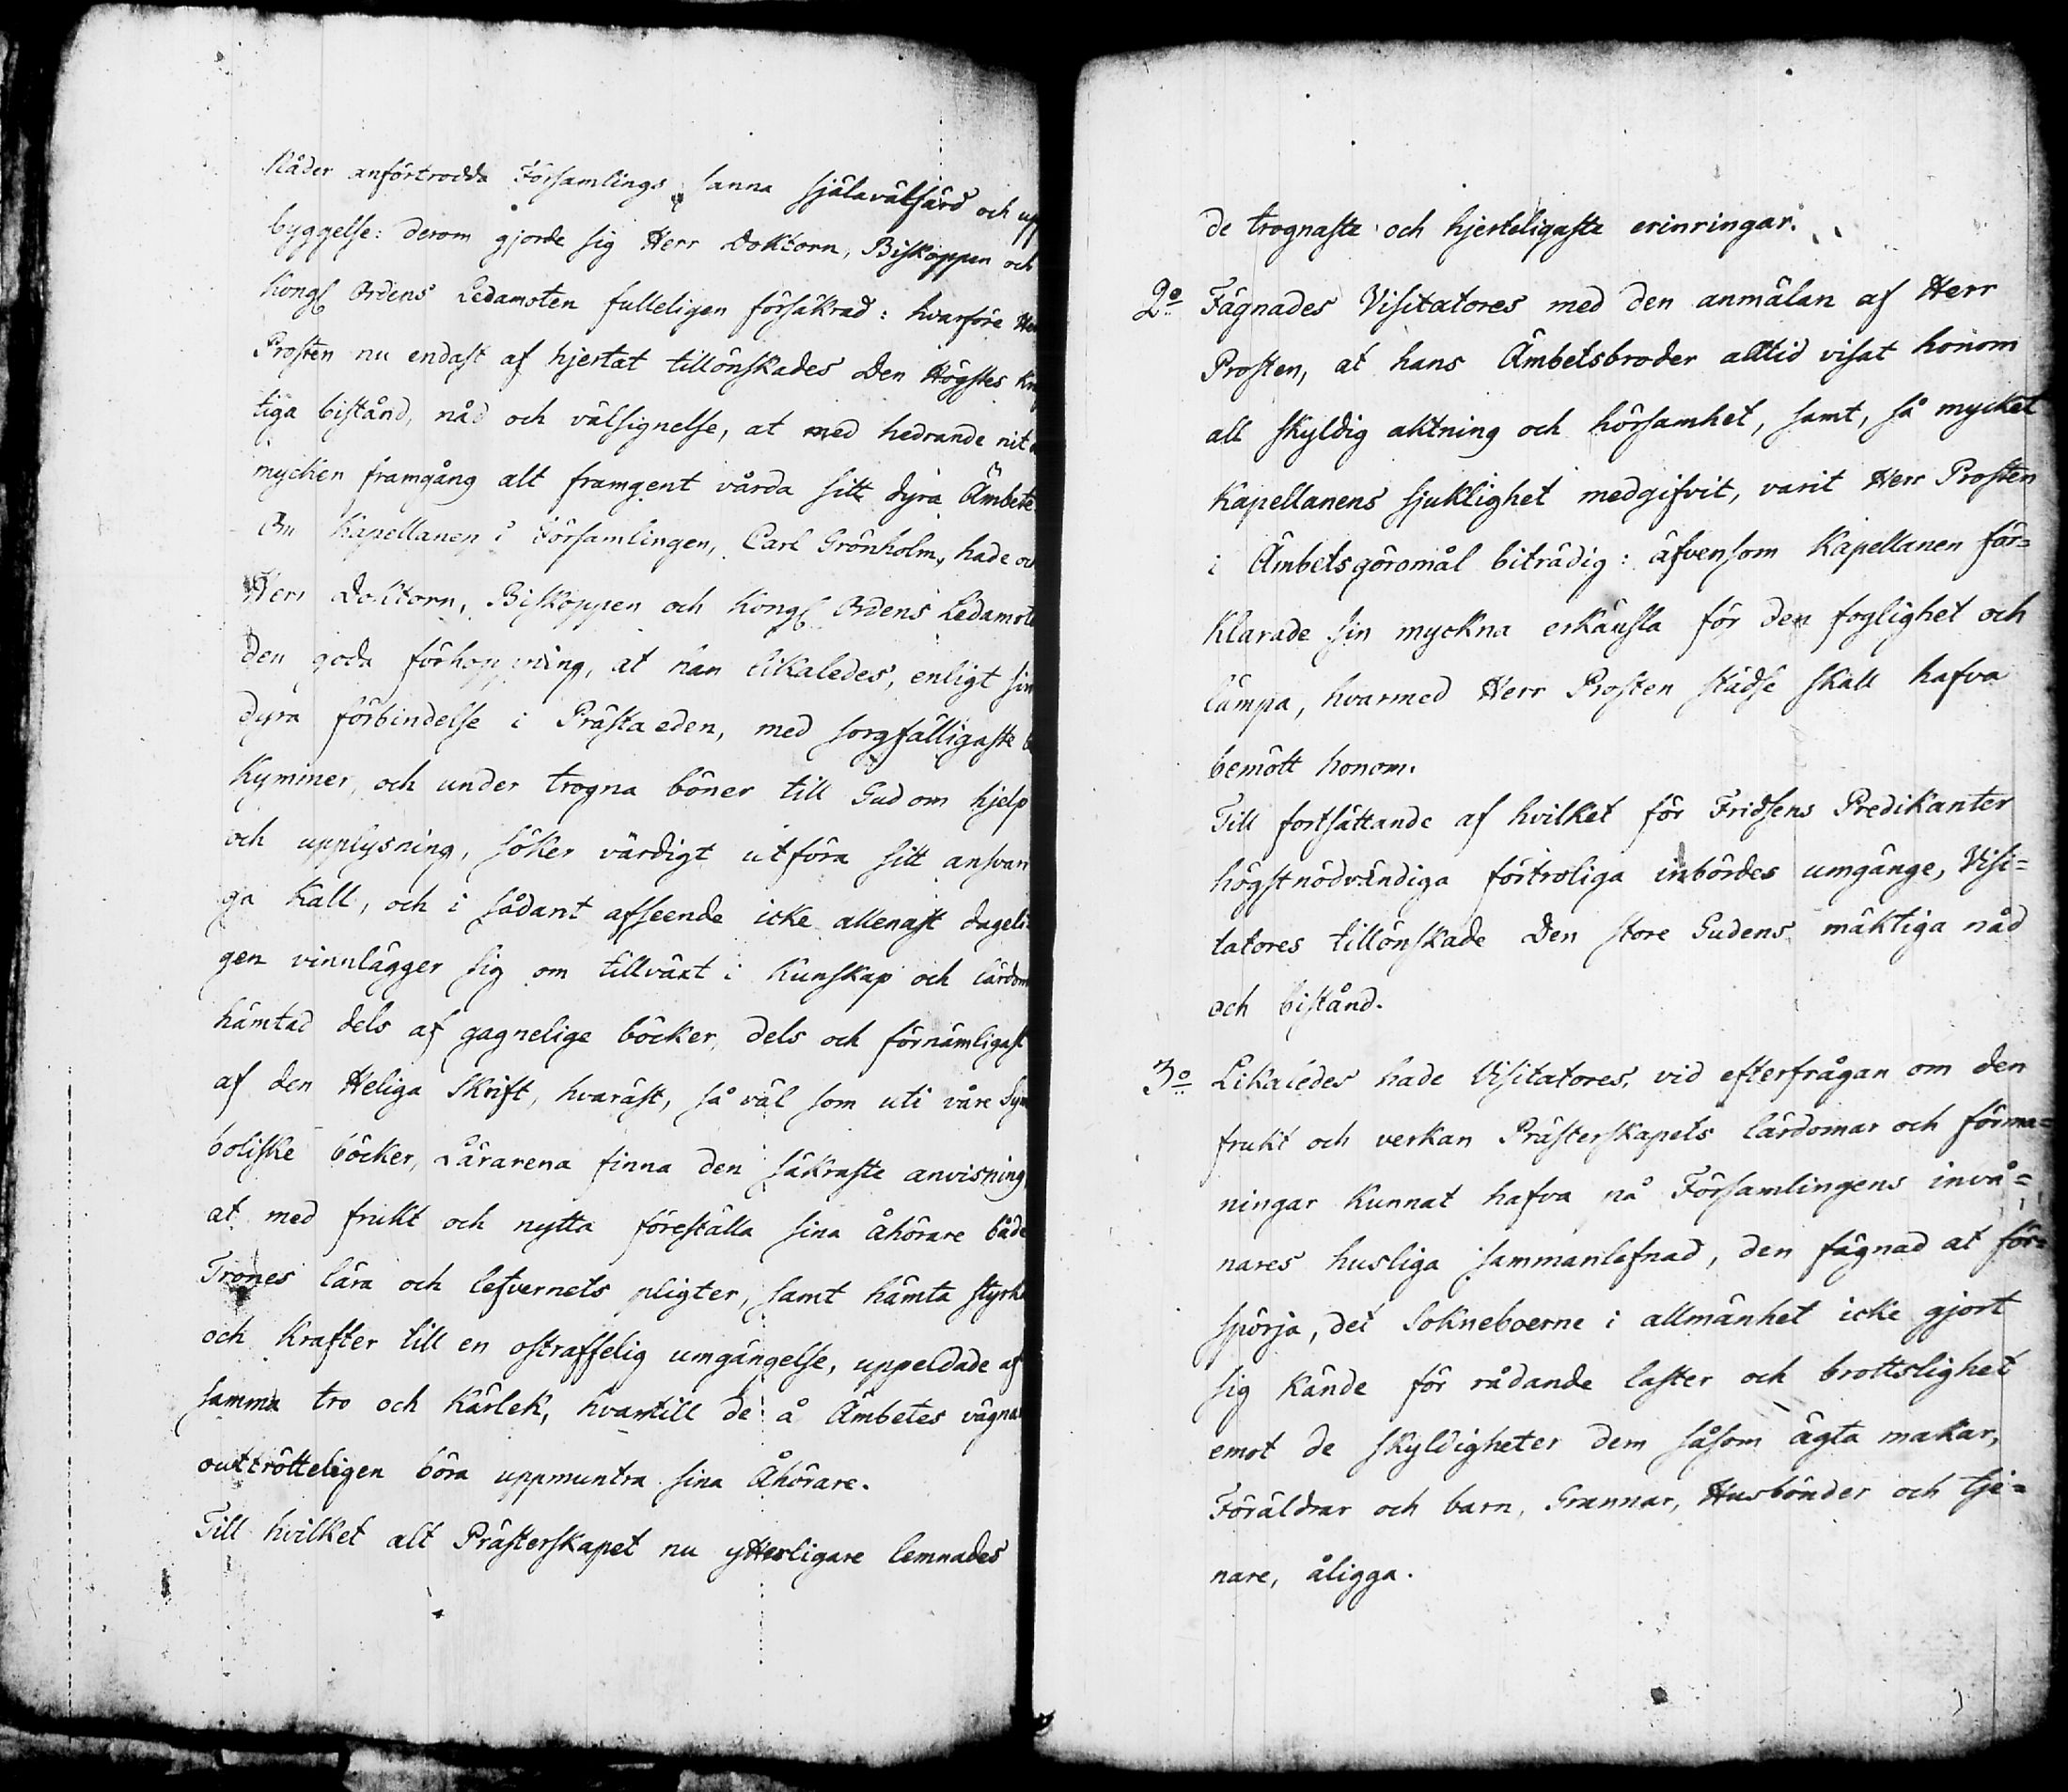 Råder anförtrodda Församlings sanna själavälfärd och upp
byggelse: derom gjorde sig Herr Doktorn, Biskoppen och
Kongl Ordens Ledamoten fulleligen försäkrad: hvarföre Herr
Prosten nu endast af hjertat tillönskades Den Högstes
tiga bistånd, nåd och välsignelse, at med hedrande nit
mycken framgång alt framgent vårda sitt dyra Ämbete.
Om Kapellanen i Församlingen, Carl Grönholm, hade och
Herr Doktorn, Biskoppen och Kongl Ordens Ledamoten
den goda förhoppning, at han likaledes, enligt sin
dyra förbindelse i Prästaeden, med sorgfälligaste be
kymmer, och under trogna böner till Gud om hjelp
och upplysning, söker värdigt utföra sitt ansvari
ga kall, och i sådant afseende icke allenast dageli
gen vinnlägger sig om tillväxt i kunskap och lärdom
hämtad dels af gagnelige böcker, dels och förnämligast
af den Heliga Skrift, hvaräst, så väl som uti våre Sym
boliske böcker, Lärarena finna den säkraste anvisning,
at med frukt och nytta föreställa sina åhörare både
Trones lära och lefvernets pligter, samt hämta styrka
och krafter till en ostraffelig umgängelse, uppeldade af
samma tro och kärlek, hvartill de å Ämbetes vägnar
outtrötteligen böra uppmuntra sina Åhörare.
Till hvilket alt Prästerskapet nu ytterligare lemnades
de trognaste och hjerteligaste erinringar.
2o Fägnades Visitatores med den anmälan af Herr
Prosten, at hans Ämbetsbroder alltid visat honom
all skyldig aktning och hörsamhet, samt, så mycket
Kapellanens sjuklighet medgifvit, varit Herr Prosten
i Ämbetsgöromål biträdig: äfvensom Kapellanen för=
klarade sin myckna erkänsla för den foglighet och
lämpa, hvarmed Herr Prosten städse skall hafva
bemött honom.
Till fortsättande af hvilket för Fridsens Predikanter
högstnödvändiga förtroliga inbördes umgänge, Visi=
tatores tillönskade Den store Gudens mäktiga nåd
och bistånd.
3o Likaledes hade Visitatores, vid efterfrågan om den
frukt och verkan Prästerskapets lärdomar och förma=
ningar kunnat hafva på Församlingens invå=
nares husliga sammanlefnad, den fägnad at för=
spörja, det Sokneboerne i allmänhet icke gjort
sig kände för rådande laster och brottslighet
emot de skyldigheter dem såsom ägta makar,
Föräldrar och barn, Grannar, Husbönder och tje=
nare, åligga.